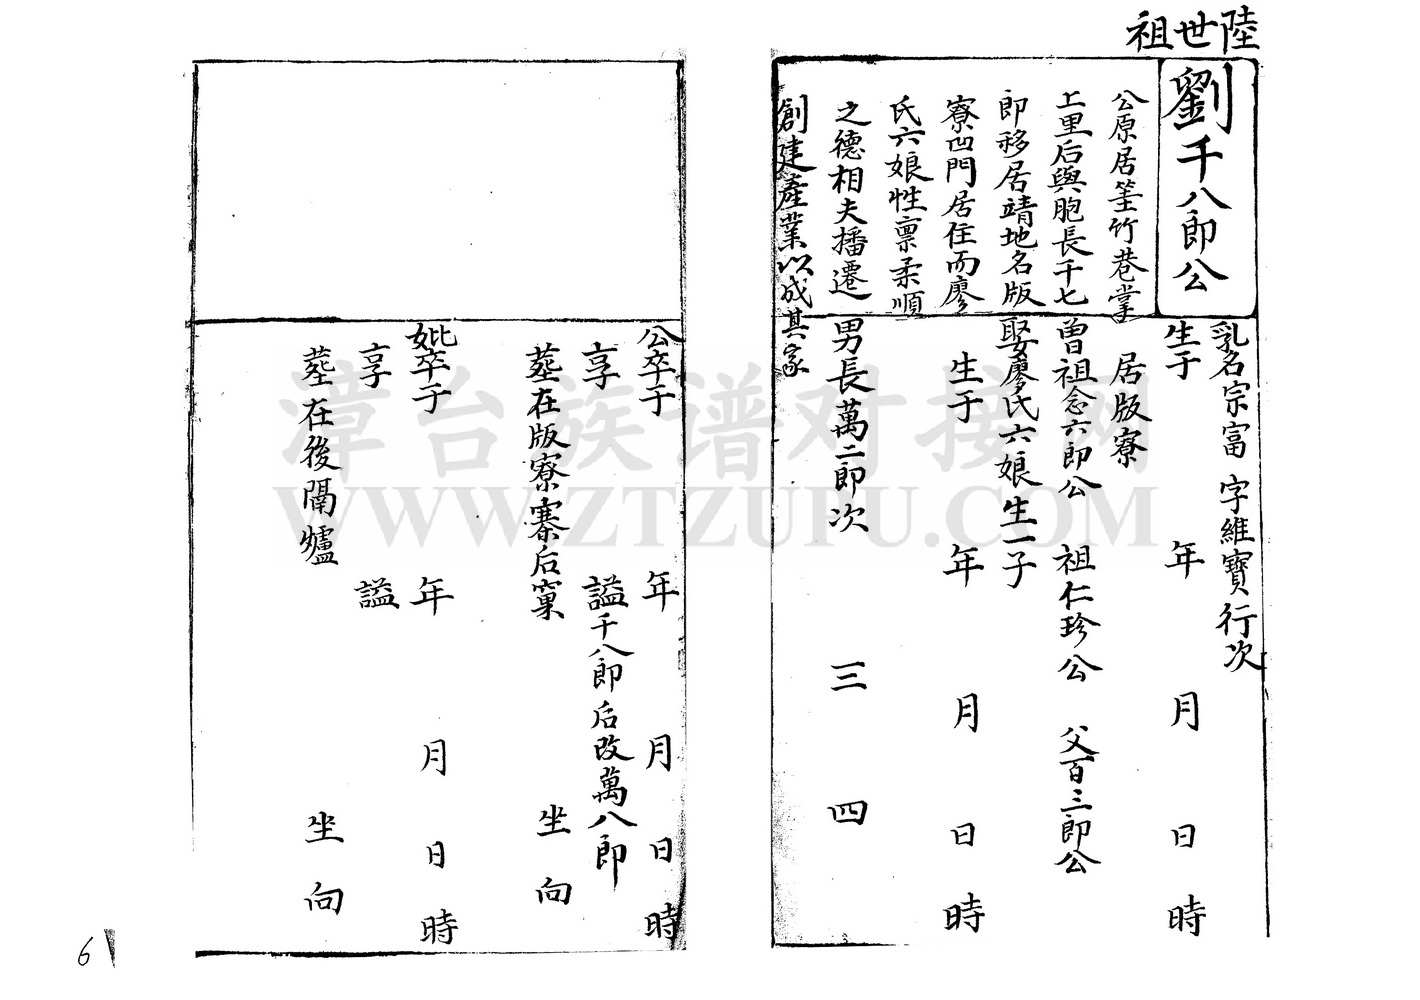 陸世祖
劉千八郎公
公原居筀竹巷掌
上里后與胞長千七
郎移居靖地名版
寮凹門居住而廖
氏六娘性禀柔順
之德相夫播遷
創建產業以成其家
乳名宗富 字維寶 行次
生于 年 月 日 時
居版寮
曾祖念六郎公 祖仁珍公 父百三郎公
娶廖氏六娘生一子
生于 年 月 日 時
男長萬二郎次 三 四
公卒于 年 月 日 時
享 謚千八郎后改萬八郎
葬在版寮寨后窠 坐 向
妣卒于 年 月 日 時
享 謚
葬在後隔爐 坐 向
6
漳台族谱对接网
WWW.ZTZUPU.COM